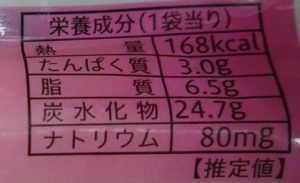 栄養成分(1袋当り)
熱量 168kcal
たんぱく質 3.0g
脂質 6.5g
炭水化物 24.7g
ナトリウム 80mg
【推定値】